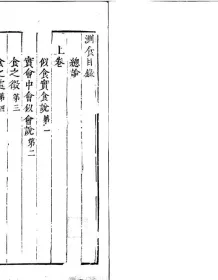 測食目錄
總論
上卷
似食實食說第一
實會中會似會說第二
食之徵第三
食之
第四